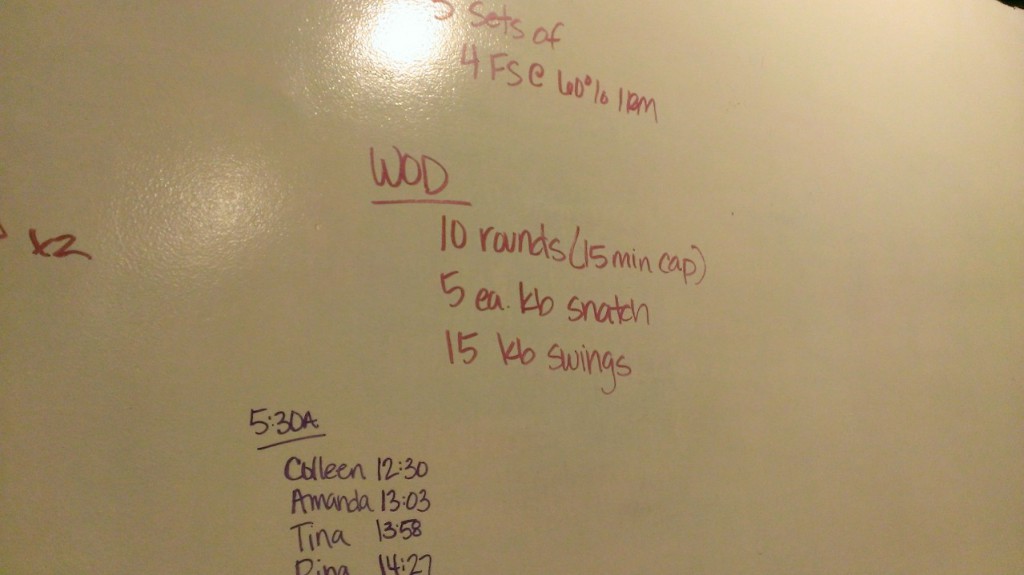 Sets of
4 FS @ 60% 1RM
WOD
10 rounds (15 min cap)
x2
5 ea. kb snatch
15 kb swings
5:30A
Colleen 12:30
Amanda 13:03
Tina 13:58
14:27